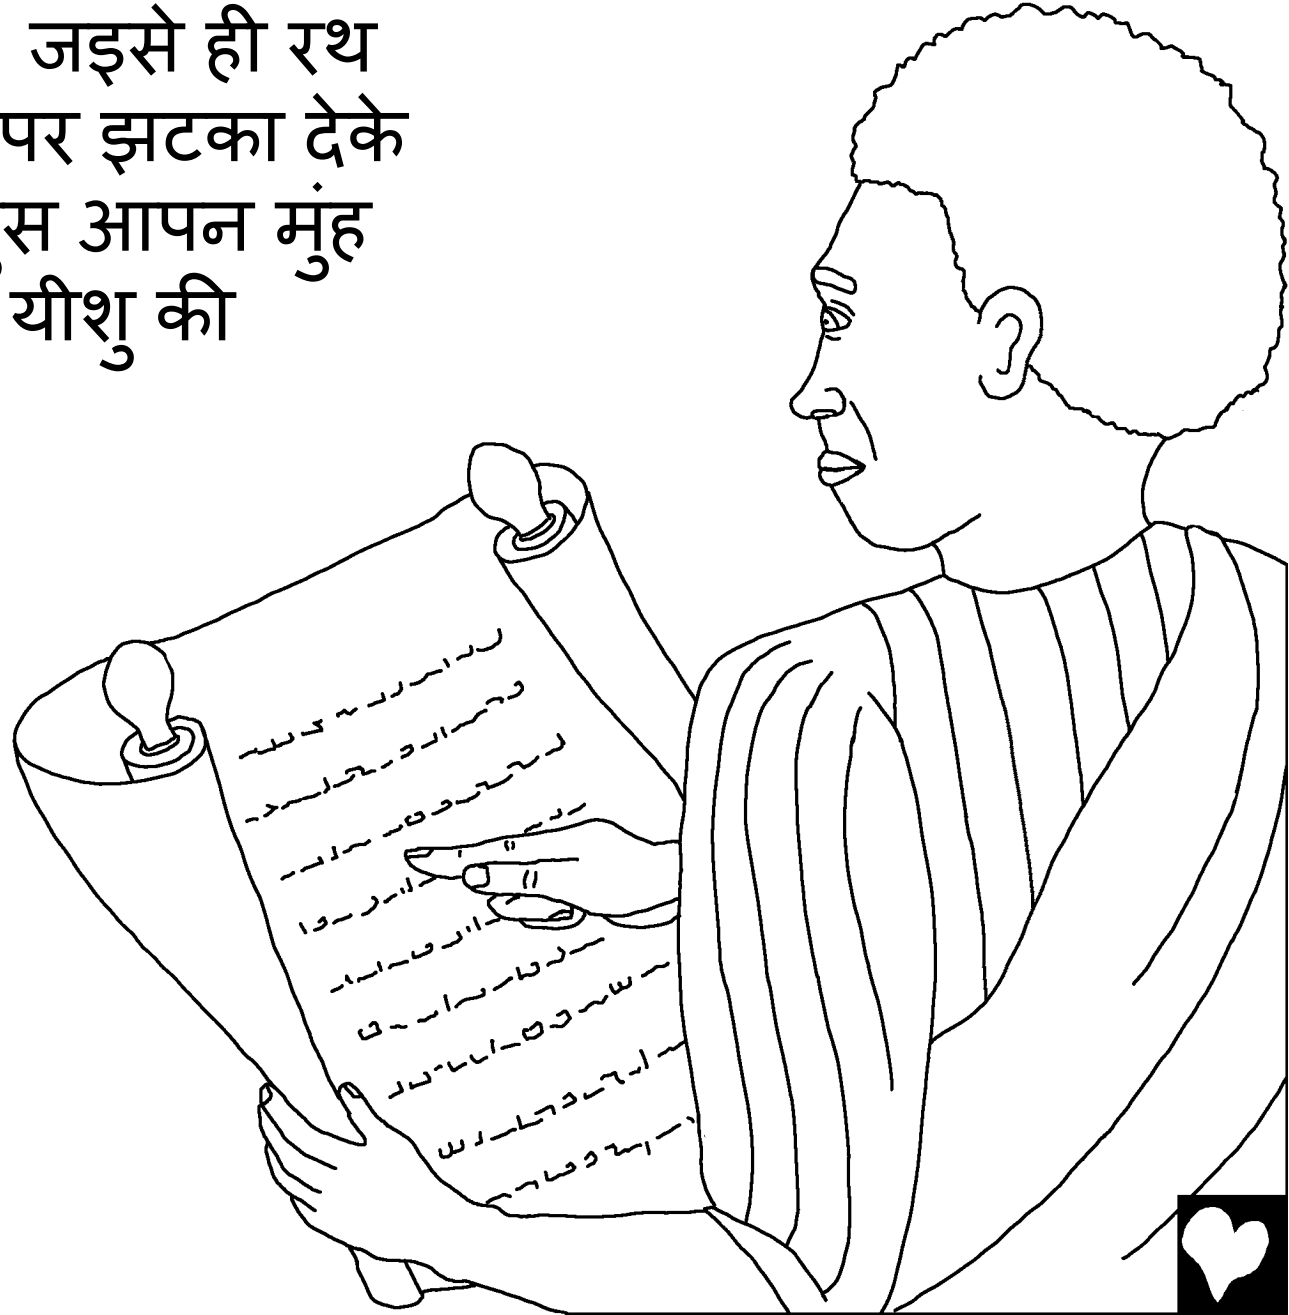 जइसे ही रथ
पर झटका देके
आपन मुंह
यीशु की